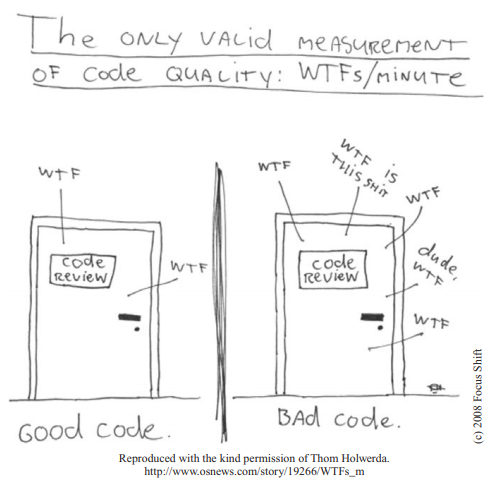 The ONLY VALID MEASUREMENT
OF Code QUALITY: WTFs/MINUTE
WTF
code
REVIEW
WTF
Good code.
WTF
WTF is
THIS SHIT
WTF
code
REVIEW
dude,
WTF
WTF
BAd code.
(c) 2008 Focus Shift
Reproduced with the kind permission of Thom Holwerda.
http://www.osnews.com/story/19266/WTFs_m